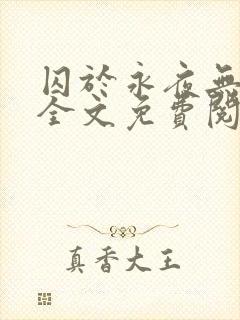 囚於永夜無
全文免費閱
真香大王